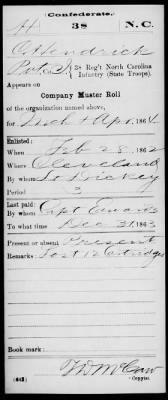 Confederate.
H 38 N.C.
O Hendrick
Pvt., 38 Reg't North Carolina
Infantry (State Troops).
Appears on
Company Muster Roll
of the organization named above,
for Mch & Apr, 1864.
Enlisted:
When Feb 28, 1862
Where Cleveland
By whom Lt Dickey
Period 3
Last paid:
By whom Capt
To what time Dec 31, 1863
Present or absent Present
Remarks: Lost 12 Cartridges
Book mark:
(642) Copyist.